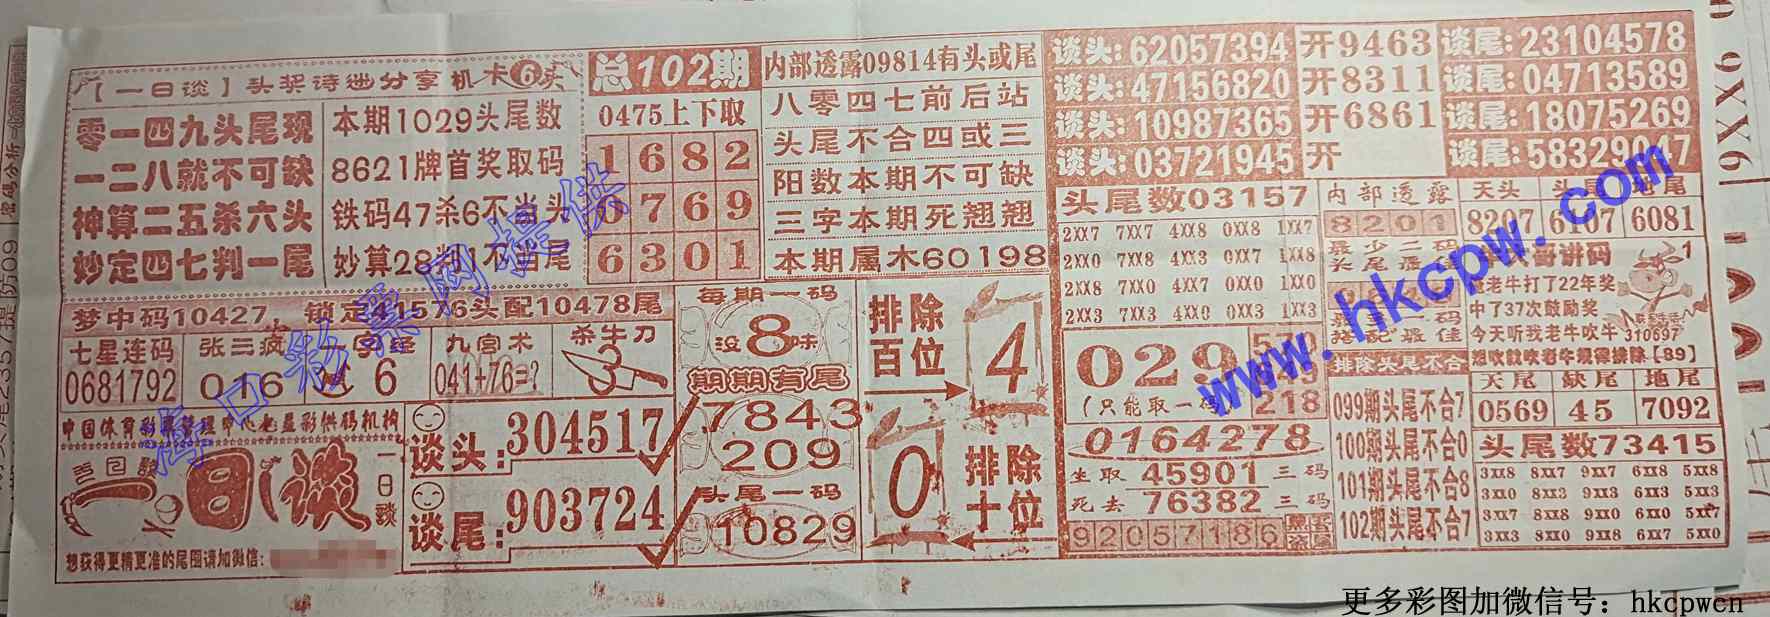 【一日谈】头奖诗迷分享机卡6头
零一四九头尾现
一二八就不可缺
神算二五杀六头
妙定四七判一尾
本期1029头尾数
8621牌首奖取码
铁码47杀6不当头
妙算28判1不当尾
总102期
0475上下取
1682
6769
6301
内部透露09814有头或尾
八零四七前后站
头尾不合四或三
阳数本期不可缺
三字本期死翘翘
本期属木60198
谈头:62057394 开9463 谈尾:23104578
谈头:47156820 开8311 谈尾:04713589
谈头:10987365 开6861 谈尾:18075269
谈头:03721945 开 谈尾:58329047
梦中码10427,锁定41576头配10478尾
七星连码
0681792
张三疯
016
6
九宫术
041+76=?
杀牛刀
3
中国体育彩票管理中心七星彩供码机构
一日谈
一日谈
想获得更精更准的尾图请加微信:
谈头:304517
谈尾:903724
每期一码
没8味
期期有尾
7843
209
头尾一码
10829
排除百位
4
0
排除十位
头尾数03157
2XX7 7XX7 4XX8 0XX8 1XX7
2XX0 7XX8 4XX3 0XX7 1XX8
2XX8 7XX0 4XX7 0XX0 1XX0
2XX3 7XX3 4XX0 0XX3 1XX3
029
(只能取一码
218
0164278
生取45901三码
死去76382三码
92057186
内部透露
8201
最少二码
排除头尾不合
099期头尾不合7
100期头尾不合0
101期头尾不合8
102期头尾不合7
天头 头尾 地尾
8207 6107 6081
讲码
老牛打了22年奖
中了37次鼓励奖
今天听我老牛吹牛
310697
想吹就吹老牛规需排除【89】
天尾 缺尾 地尾
0569 45 7092
头尾数73415
3XX8 8XX7 9XX7 6XX8 5XX8
3XX0 8XX3 9XX3 6XX3 5XX3
3XX7 8XX8 9XX0 6XX0 5XX7
3XX3 8XX0 9XX8 6XX7 5XX0
海口彩票网提供
www.hkcpw.com
更多彩图加微信号：hkcpwcn